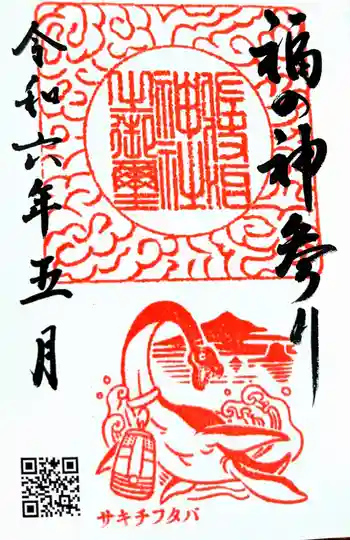 福の神参り
神社
之御璽
令和六年五月
サキチフタバ